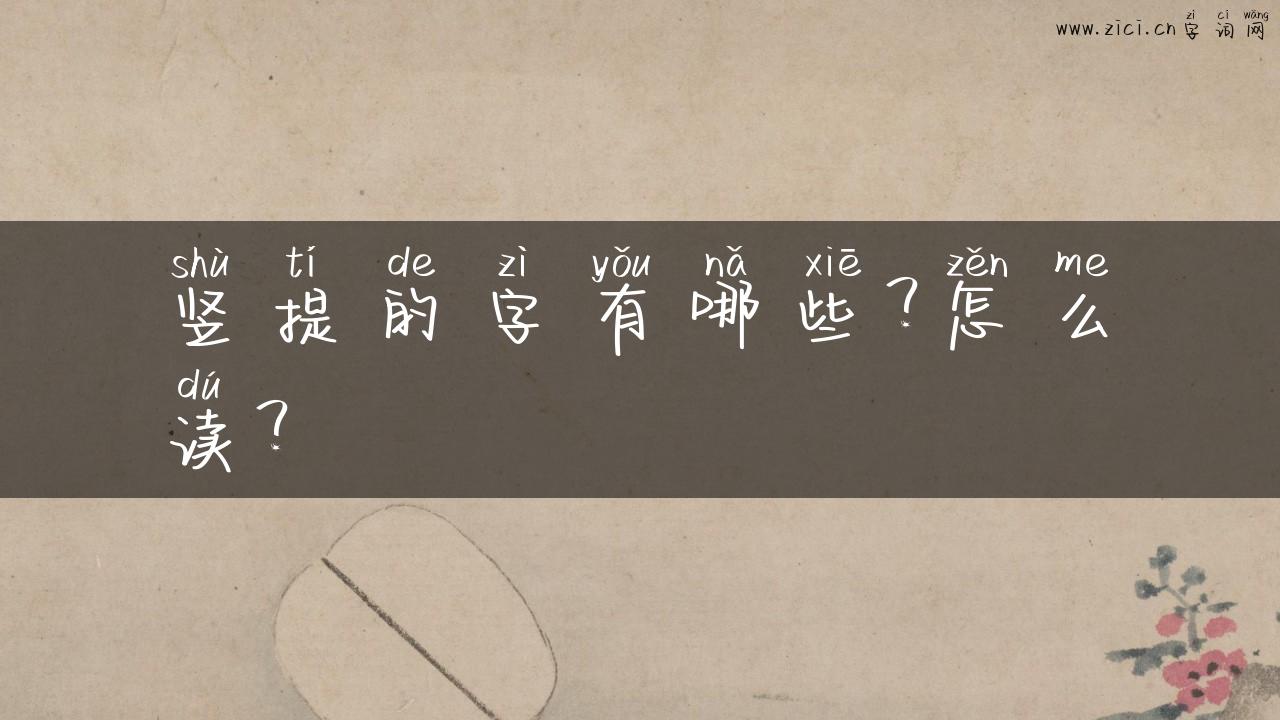 zì cí wǎng
www.zici.cn字词网
shù tí de zì yǒu nǎ xiē zěn me
竖提的字有哪些?怎么
dú
读?